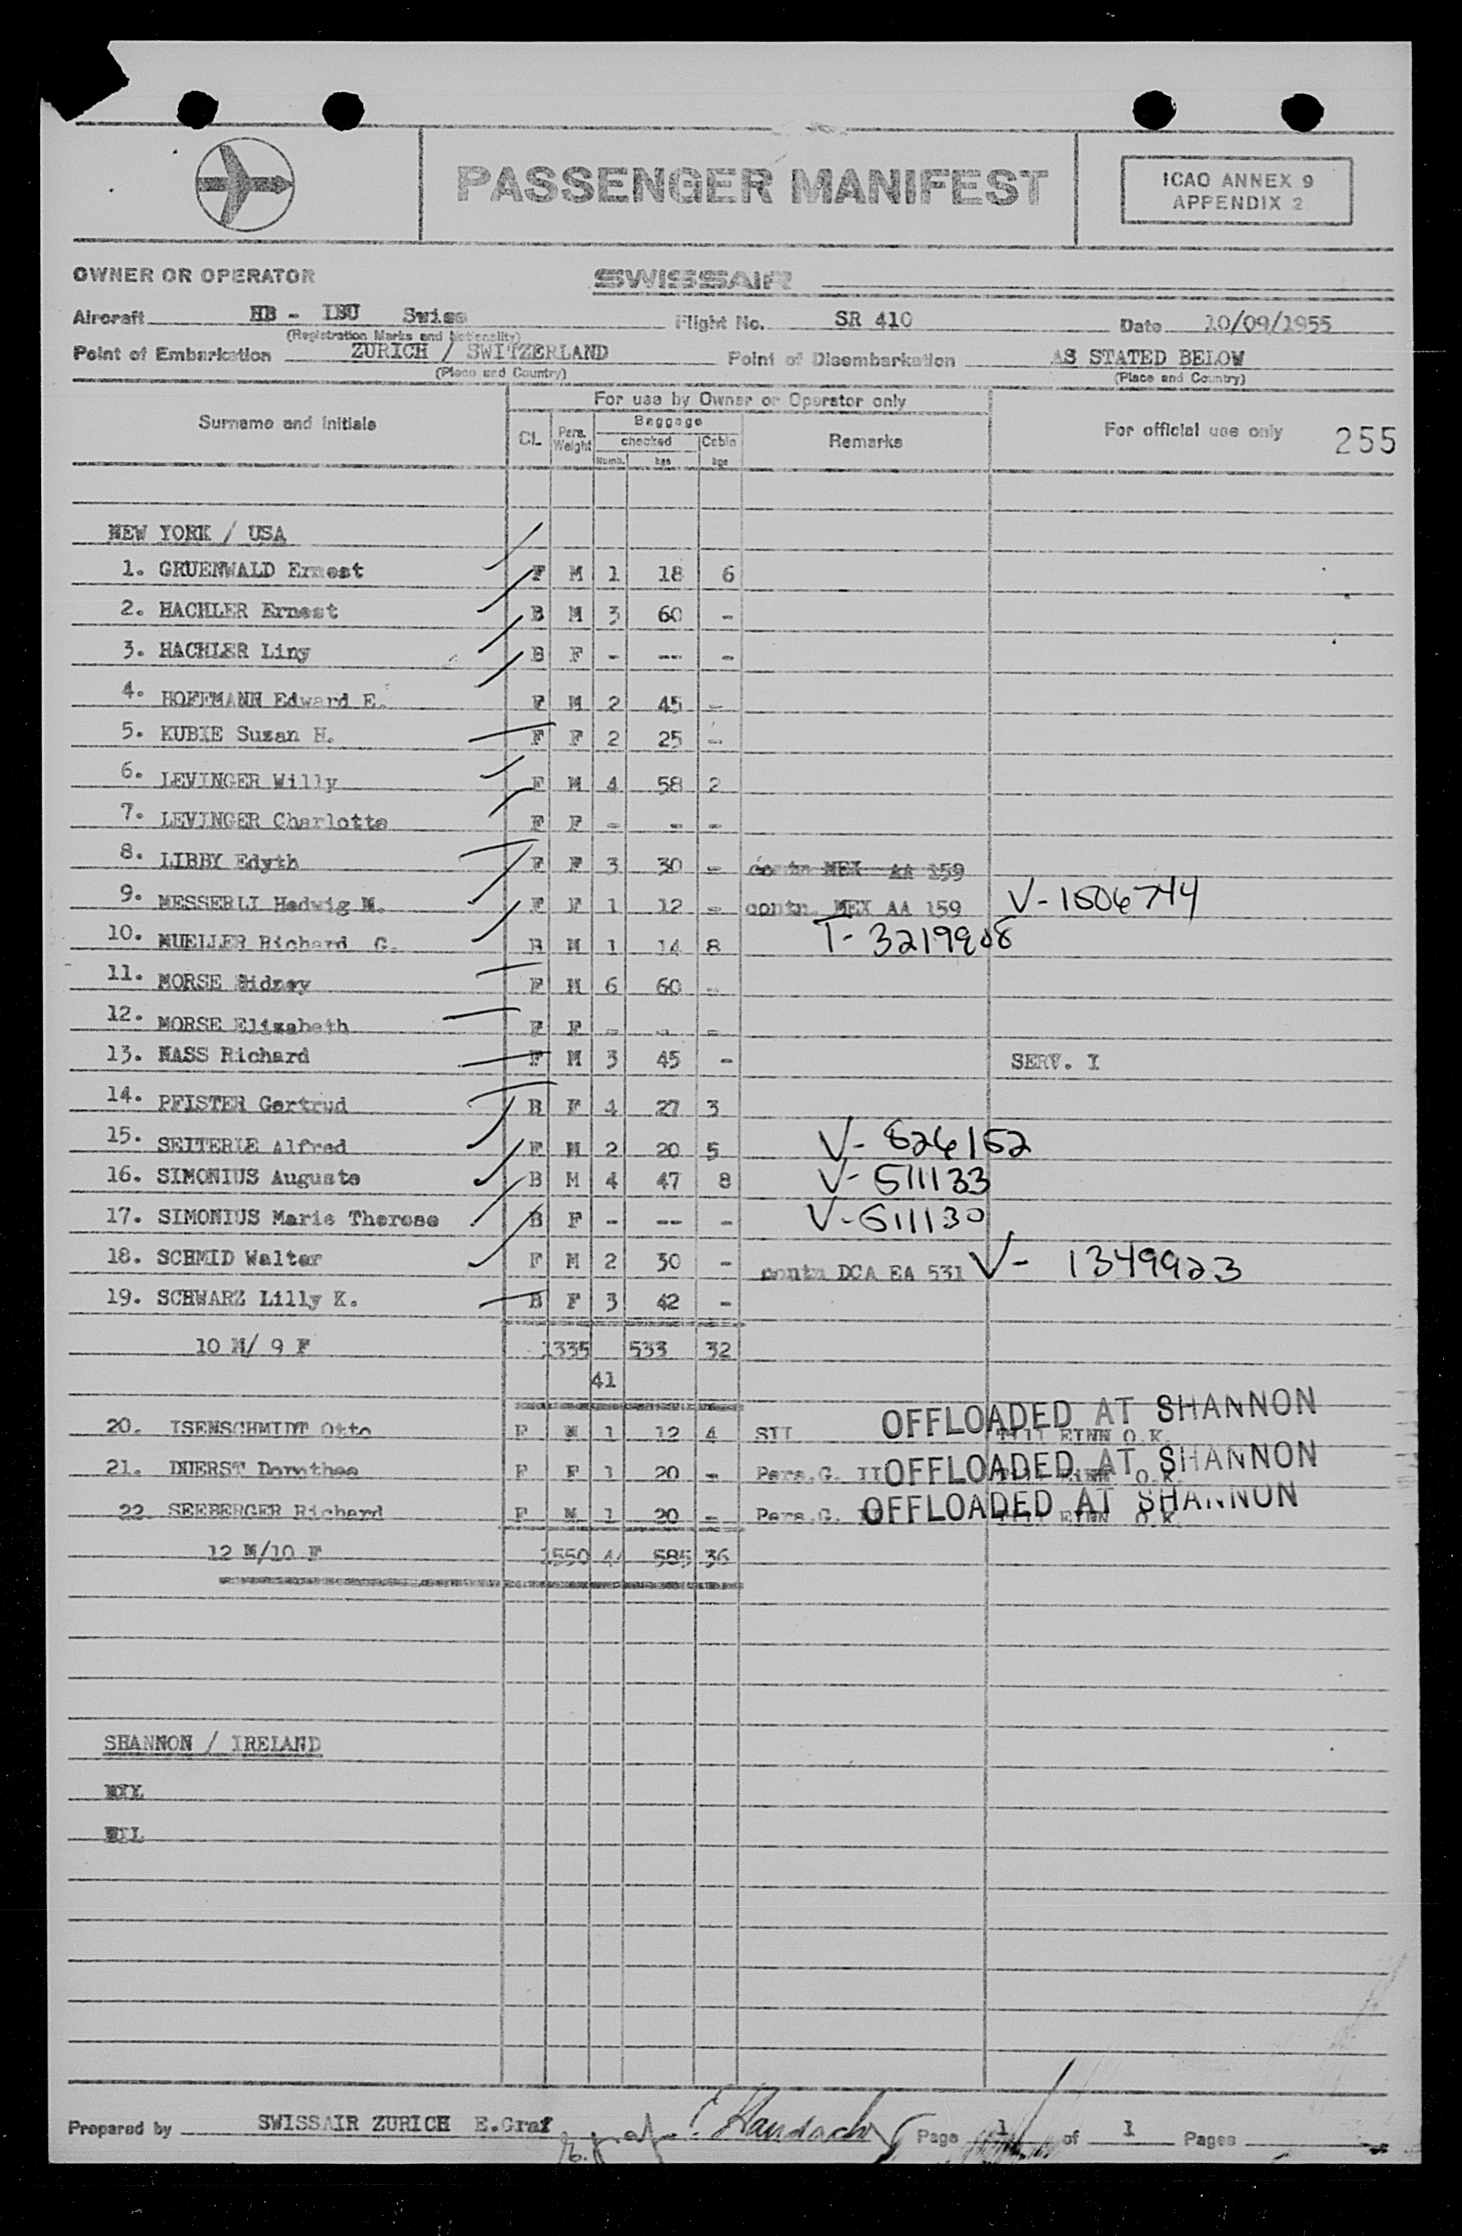 PASSENGER MANIFEST
ICAO ANNEX 9
APPENDIX 2
OWNER OR OPERATOR SWISSAIR
Aircraft HB - IBU Swiss Flight No. SR 410 Date 10/09/1955
(Registration Marks and Nationality)
Point of Embarkation ZURICH / SWITZERLAND Point of Disembarkation AS STATED BELOW
(Place and Country) (Place and Country)
For use by Owner or Operator only
Surname and initials CL. Pers. Weight Baggage checked Numb. kgs Cabin kgs Remarks For official use only 255
NEW YORK / USA
1. GRUENWALD Ernest F M 1 18 6
2. HACHLER Ernest B M 3 60 -
3. HACHLER Liny B F - -- -
4. HOFFMANN Edward E. F M 2 45 -
5. KUBIE Susan H. F F 2 25 -
6. LEVINGER Willy F M 4 58 2
7. LEVINGER Charlotte F F - - -
8. LIBBY Edyth F F 3 30 - contn MEX AA 159
9. MESSERLI Hedwig M. F F 1 12 - contn. MEX AA 159 V-1506744
10. MUELLER Richard G. B M 1 14 8 T-3219908
11. MORSE Sidney F M 6 60 -
12. MORSE Elizabeth F F - - -
13. NASS Richard F M 3 45 - SERV. I
14. PFISTER Gertrud B F 4 27 3
15. SEITERLE Alfred F M 2 20 5 V-826152
16. SIMONIUS Auguste B M 4 47 8 V-511133
17. SIMONIUS Marie Therese B F - -- - V-511130
18. SCHMID Walter F M 2 30 - contn DCA EA 531 V-1349923
19. SCHWARZ Lilly K. B F 3 42 -
10 M/ 9 F 1335 533 32
41
20. ISENSCHMIDT Otto F M 1 12 4 STI OFFLOADED AT SHANNON
21. DUERST Dorothea F F 1 20 - Pers.G. II OFFLOADED AT SHANNON
22. SEEBERGER Richard F M 1 20 - Pers.G. OFFLOADED AT SHANNON
12 M/10 F 1550 44 585 36
SHANNON / IRELAND
NIL
NIL
Prepared by SWISSAIR ZURICH E.Graf E. Graf Page 1 of 1 Pages